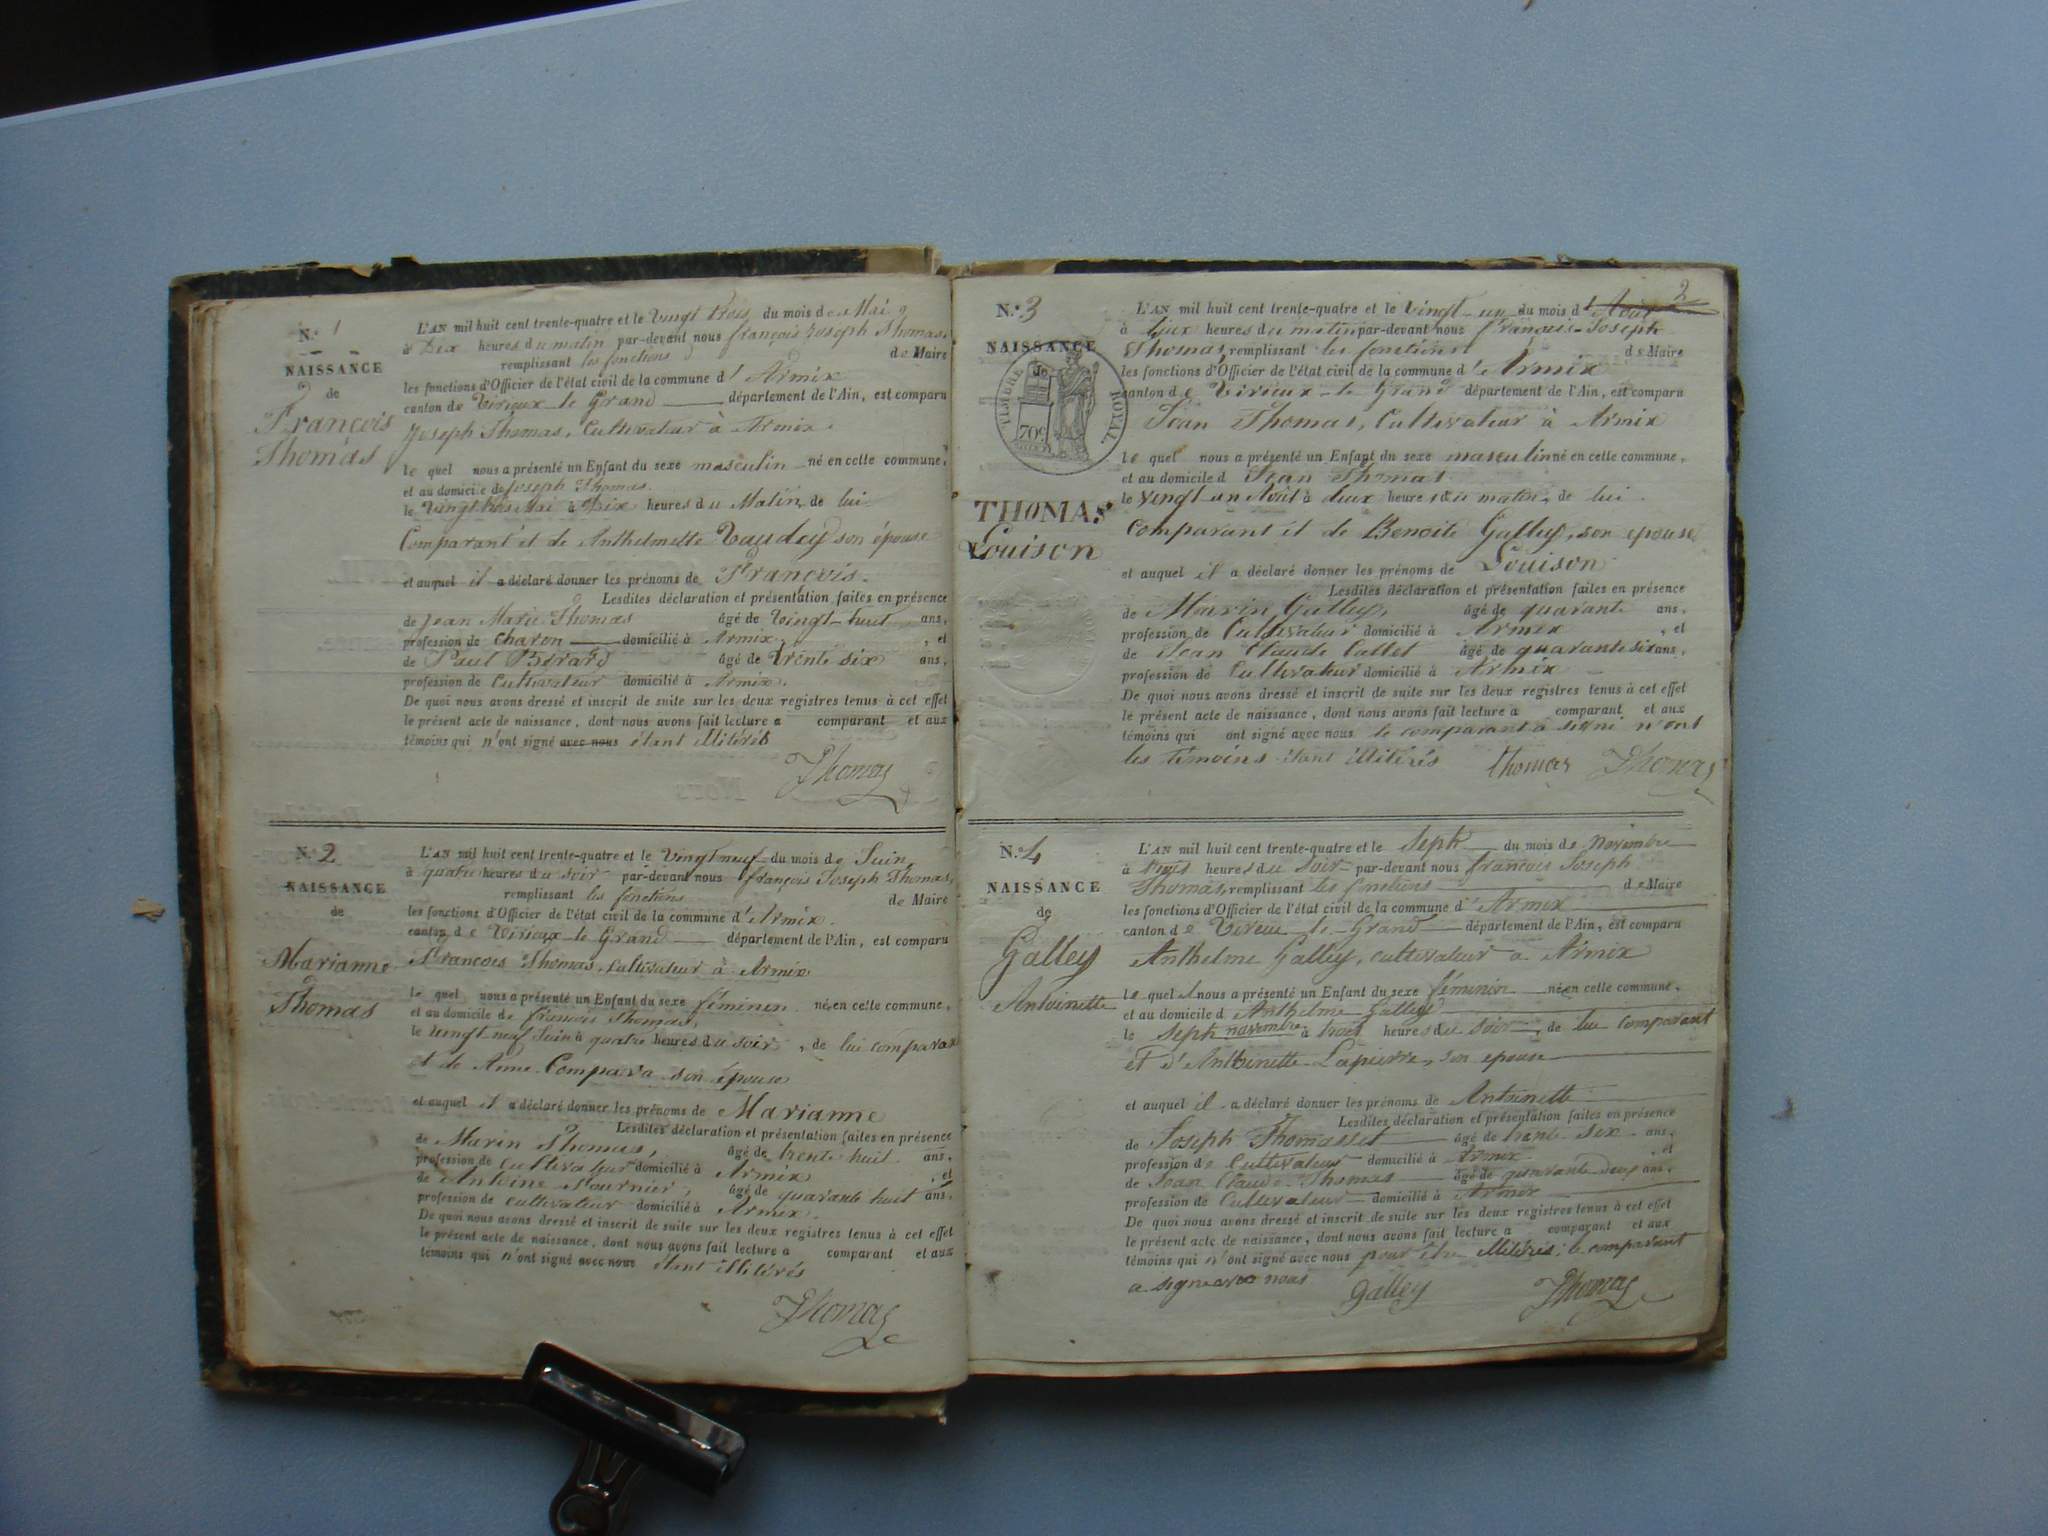 N.° 1
NAISSANCE
de
François
Thomas
L'AN mil huit cent trente-quatre et le vingt trois du mois de Mai
à Dix heures du matin par-devant nous françois Joseph Thomas,
remplissant les fonctions de Maire
les fonctions d'Officier de l'état civil de la commune d'Armix
canton de Virieux-le Grand département de l'Ain, est comparu
Joseph Thomas, Cultivateur à Armix.
le quel nous a présenté un Enfant du sexe masculin né en cette commune,
et au domicile de Joseph Thomas.
le vingt trois Mai à Dix heures du Matin, de lui
Comparant et de Anthelmette Vaudey son épouse
et auquel il a déclaré donner les prénoms de François.
Lesdites déclaration et présentation faites en présence
de Jean Marie Thomas âgé de vingt-huit ans,
profession de charon domicilié à Armix, et
de Paul Berard âgé de trente six ans,
profession de cultivateur domicilié à Armix.
De quoi nous avons dressé et inscrit de suite sur les deux registres tenus à cet effet
le présent acte de naissance, dont nous avons fait lecture a comparant et aux
témoins qui n'ont signé avec nous étant illitérés
Thomas
N.° 2
NAISSANCE
de
Marianne
Thomas
L'AN mil huit cent trente-quatre et le vingt neuf du mois de Juin,
à quatre heures du soir par-devant nous françois Joseph Thomas,
remplissant les fonctions de Maire
les fonctions d'Officier de l'état civil de la commune d'Armix.
canton de Virieux-le Grand département de l'Ain, est comparu
François Thomas, cultivateur à Armix
le quel nous a présenté un Enfant du sexe féminen née en cette commune,
et au domicile de françois Thomas,
le vingt neuf Juin à quatre heures du soir, de lui comparant
et de Anne Compara son épouse
et auquel il a déclaré donner les prénoms de Marianne
Lesdites déclaration et présentation faites en présence
de Marin Thomas, âgé de trente huit ans,
profession de cultivateur domicilié à Armix, et
de Antoine Fournier, âgé de quarante huit ans,
profession de cultivateur domicilié à Armix.
De quoi nous avons dressé et inscrit de suite sur les deux registres tenus à cet effet
le présent acte de naissance, dont nous avons fait lecture a comparant et aux
témoins qui n'ont signé avec nous étant illitérés
Thomas
2
N.° 3
NAISSANCE
de
TIMBRE ROYAL.
70c
THOMAS
Louison
L'AN mil huit cent trente-quatre et le vingt-un du mois d'Août
à deux heures du matin par-devant nous François-Joseph
Thomas, remplissant les fonctions de Maire
les fonctions d'Officier de l'état civil de la commune d'Armix
canton de Virieux-le Grand département de l'Ain, est comparu
Jean Thomas, Cultivateur à Armix
le quel nous a présenté un Enfant du sexe masculin né en cette commune,
et au domicile d Jean Thomas
le vingt un Août à deux heures du matin, de lui
comparant et de Benoite Galley, son epouse
et auquel il a déclaré donner les prénoms de Louison
Lesdites déclaration et présentation faites en présence
de Marin Galley, âgé de quarante ans,
profession de Cultivateur domicilié à Armix, et
de Jean Claude Callet âgé de quarante six ans,
profession de Cultivateur domicilié à Armix
De quoi nous avons dressé et inscrit de suite sur les deux registres tenus à cet effet
le présent acte de naissance, dont nous avons fait lecture a comparant et aux
témoins qui ont signé avec nous le comparant a signé n'ont
les témoins étant illitérés Thomas Thomas
N.° 4
NAISSANCE
de
Galley
Antoinette
L'AN mil huit cent trente-quatre et le Sept du mois de novembre
à trois heures du soir par-devant nous françois Joseph
Thomas, remplissant les fonctions de Maire
les fonctions d'Officier de l'état civil de la commune d'Armix
canton de Virieu le Grand département de l'Ain, est comparu
Anthelme Galley, cultivateur a Armix
le quel nous a présenté un Enfant du sexe féminin née en cette commune,
et au domicile d Anthelme Galley
le Sept novembre à trois heures du soir, de lui comparant
et d'Antoinette Lapierre, son epouse
et auquel il a déclaré donner les prénoms de Antoinette
Lesdites déclaration et présentation faites en présence
de Joseph Thomasset âgé de trente-six ans,
profession de Cultivateur domicilié à Armix, et
de Jean Claude Thomas âgé de quarante deux ans,
profession de Cultivateur domicilié à Armix
De quoi nous avons dressé et inscrit de suite sur les deux registres tenus à cet effet
le présent acte de naissance, dont nous avons fait lecture a comparant et aux
témoins qui n'ont signé avec nous pour être illitérés; le comparant
a signé avec nous Galley Thomas